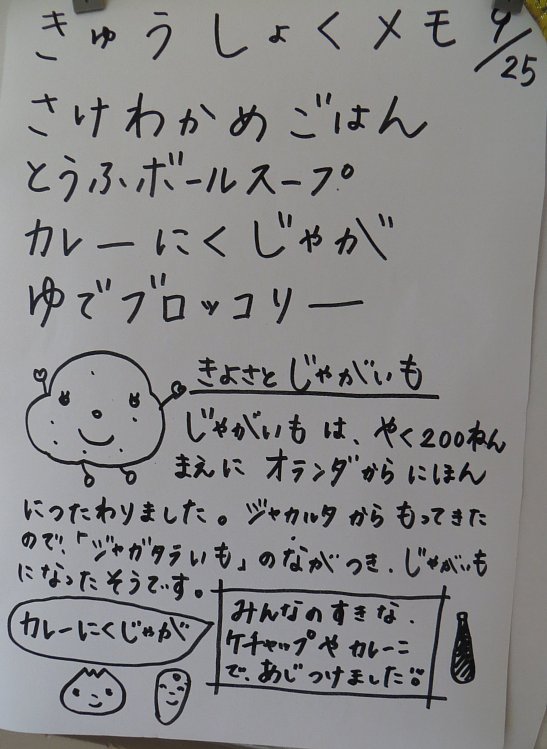 きゅうしょくメモ 9/25
さけわかめごはん
とうふボールスープ
カレーにくじゃが
ゆでブロッコリー
きよさとじゃがいも
じゃがいもは、やく200ねん
まえにオランダからにほん
につたわりました。ジャカルタからもってきた
ので、「ジャガタラいも」のながつき、じゃがいも
になったそうです。
カレーにくじゃが
みんなのすきな、
ケチャップやカレーこ
で、あじつけました。